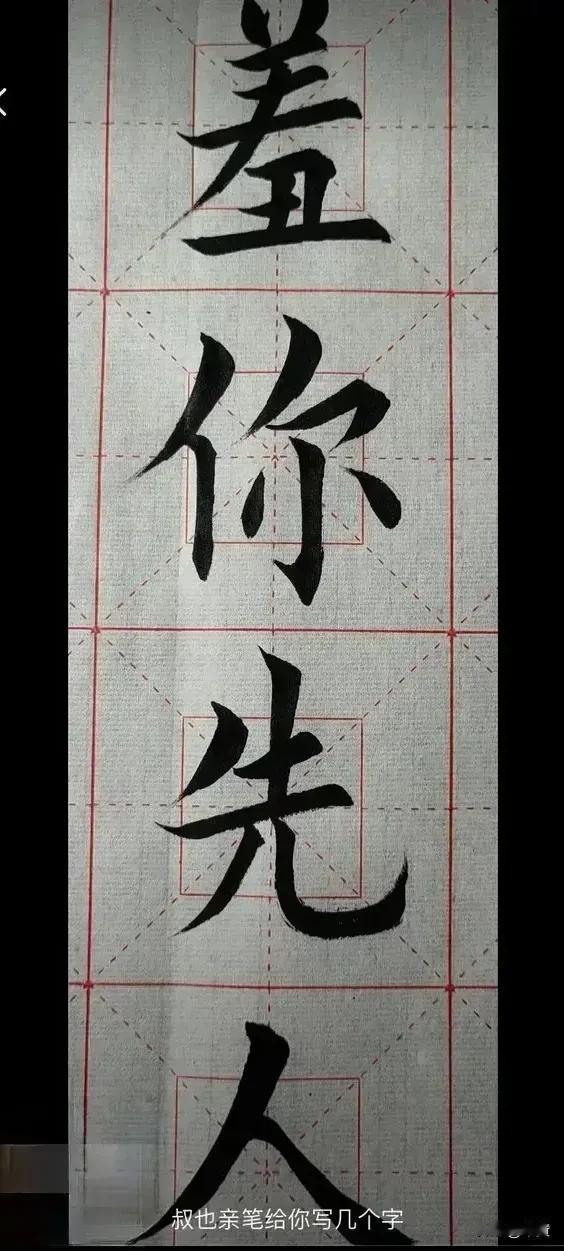 羞
你
先
人
叔也亲笔给你写几个字